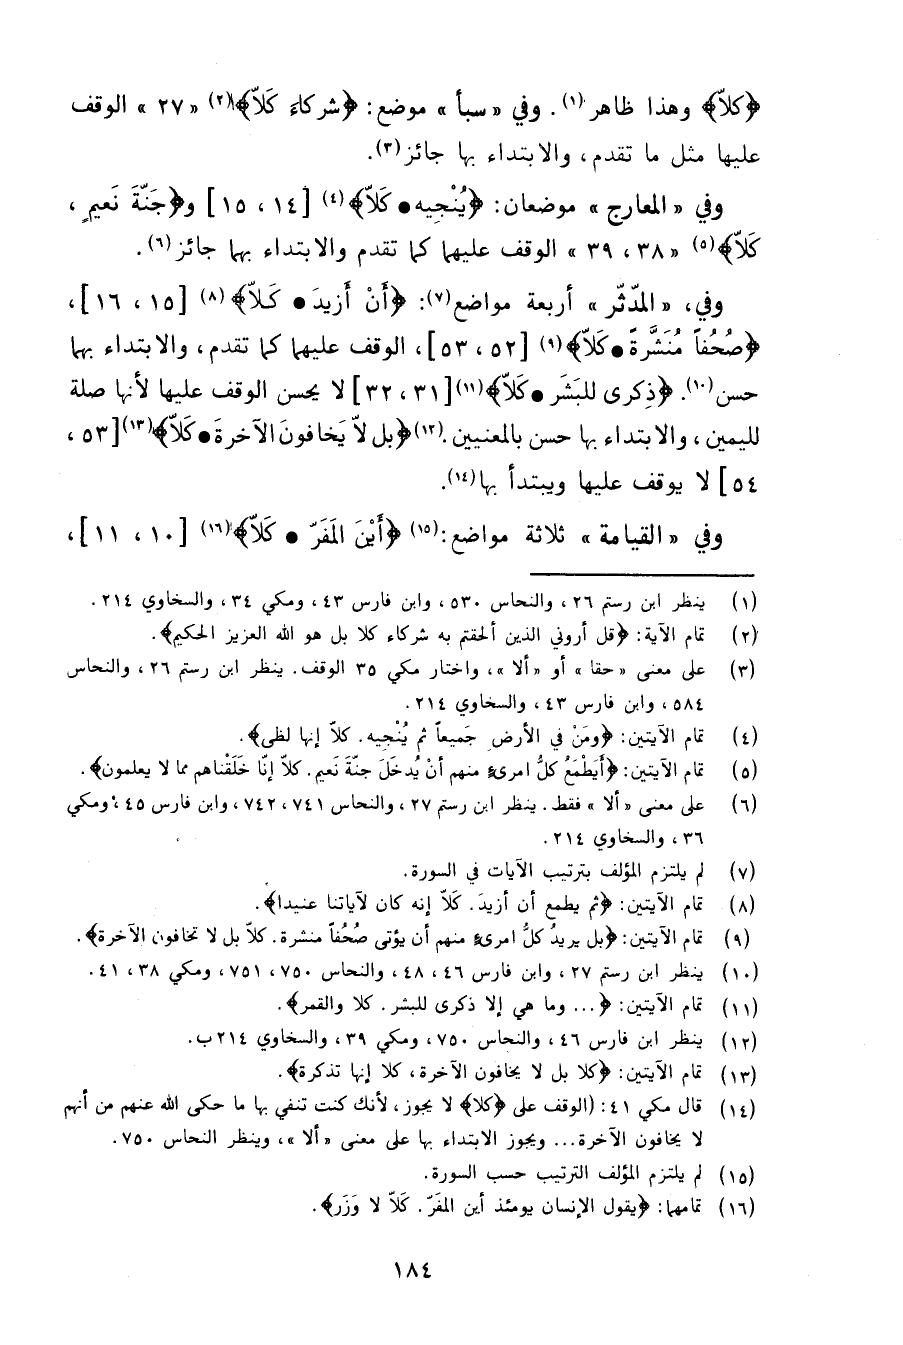 ﴿كلاّ﴾ وهذا ظاهر(١). وفي «سبأ» موضع: ﴿شركاءَ كَلاّ﴾(٢) «٢٧» الوقف
عليها مثل ما تقدم، والابتداء بها جائز(٣).
وفي «المعارج» موضعان: ﴿يُنْجيه • كَلاّ﴾(٤) [١٤، ١٥] و﴿جَنّةَ نَعيمٍ،
كَلاّ﴾(٥) «٣٨، ٣٩» الوقف عليهما كما تقدم والابتداء بهما جائز(٦).
وفي، «المدّثّر» أربعة مواضع(٧): ﴿أَنْ أَزيدَ • كَلاّ﴾(٨) [١٥، ١٦]،
﴿صُحُفاً مُنَشَّرةً • كَلاّ﴾(٩) [٥٢، ٥٣]، الوقف عليهما كما تقدم، والابتداء بهما
حسن(١٠). ﴿ذِكرى للبَشَر • كَلاّ﴾(١١) [٣١، ٣٢] لا يحسن الوقف عليها لأنها صلة
لليمين، والابتداء بها حسن بالمعنيين.(١٢) ﴿بل لاّ يَخافونَ الآخرةَ • كَلاّ﴾(١٣) [٥٣،
٥٤] لا يوقف عليها ويبتدأ بها(١٤).
وفي «القيامة» ثلاثة مواضع:(١٥) ﴿أَيْنَ المَفَرّ • كَلاّ﴾(١٦) [١٠، ١١]،
(١) ينظر ابن رستم ٢٦، والنحاس ٥٣٠، وابن فارس ٤٣، ومكي ٣٤، والسخاوي ٢١٤.
(٢) تمام الآية: ﴿قل أروني الذين ألحقتم به شركاء كلا بل هو الله العزيز الحكيم﴾.
(٣) على معنى «حقا» أو «ألا»، واختار مكي ٣٥ الوقف. ينظر ابن رستم ٢٦، والنحاس
٥٨٤، وابن فارس ٤٣، والسخاوي ٢١٤.
(٤) تمام الآيتين: ﴿ومَنْ في الأرض جَميعاً ثم يُنْجيه. كلاّ إنها لظى﴾.
(٥) تمام الآيتين: ﴿أَيَطْمَعُ كلُّ امرىء منهم أنْ يُدخَلَ جنّةَ نَعيم. كلاّ إنّا خَلَقْناهم مما لا يعلمون﴾.
(٦) على معنى «ألا» فقط. ينظر ابن رستم ٢٧، والنحاس ٧٤١، ٧٤٢، وابن فارس ٤٥، ومكي
٣٦، والسخاوي ٢١٤.
(٧) لم يلتزم المؤلف بترتيب الآيات في السورة.
(٨) تمام الآيتين: ﴿ثم يطمع أن أزيدَ. كَلاّ إنه كان لآياتنا عنيدا﴾.
(٩) تمام الآيتين: ﴿بل يريدُ كلُّ امرىء منهم أن يؤتى صُحُفاً منشرة. كلاّ بل لا تخافون الآخرة﴾.
(١٠) ينظر ابن رستم ٢٧، وابن فارس ٤٦، ٤٨، والنحاس ٧٥٠، ٧٥١، ومكي ٣٨، ٤١.
(١١) تمام الآيتين: ﴿... وما هي إلا ذكرى للبشر. كلا والقمر﴾.
(١٢) ينظر ابن فارس ٤٦، والنحاس ٧٥٠، ومكي ٣٩، والسخاوي ٢١٤ب.
(١٣) تمام الآيتين: ﴿كلا بل لا يخافون الآخرة، كلا إنها تذكرة﴾.
(١٤) قال مكي ٤١: (الوقف على ﴿كلا﴾ لا يجوز، لأنك كنت تنفي بها ما حكى الله عنهم من أنهم
لا يخافون الآخرة... ويجوز الابتداء بها على معنى «ألا»، وينظر النحاس ٧٥٠.
(١٥) لم يلتزم المؤلف الترتيب حسب السورة.
(١٦) تمامهما: ﴿يقول الإنسان يومئذ أين المفَرّ. كَلاّ لا وَزَر﴾.
١٨٤